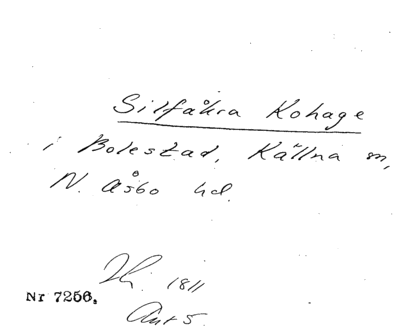 Silfåkra Kohage
i Bolestad, Källna sn,
N. Åsbo hd.
1811
Nr 7256.
Ant 5.